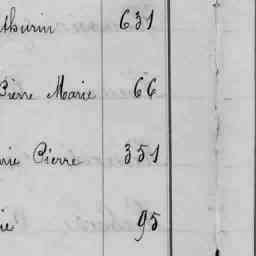 thurin 631
Pierre Marie 66
rie Pierre 351
ie 95